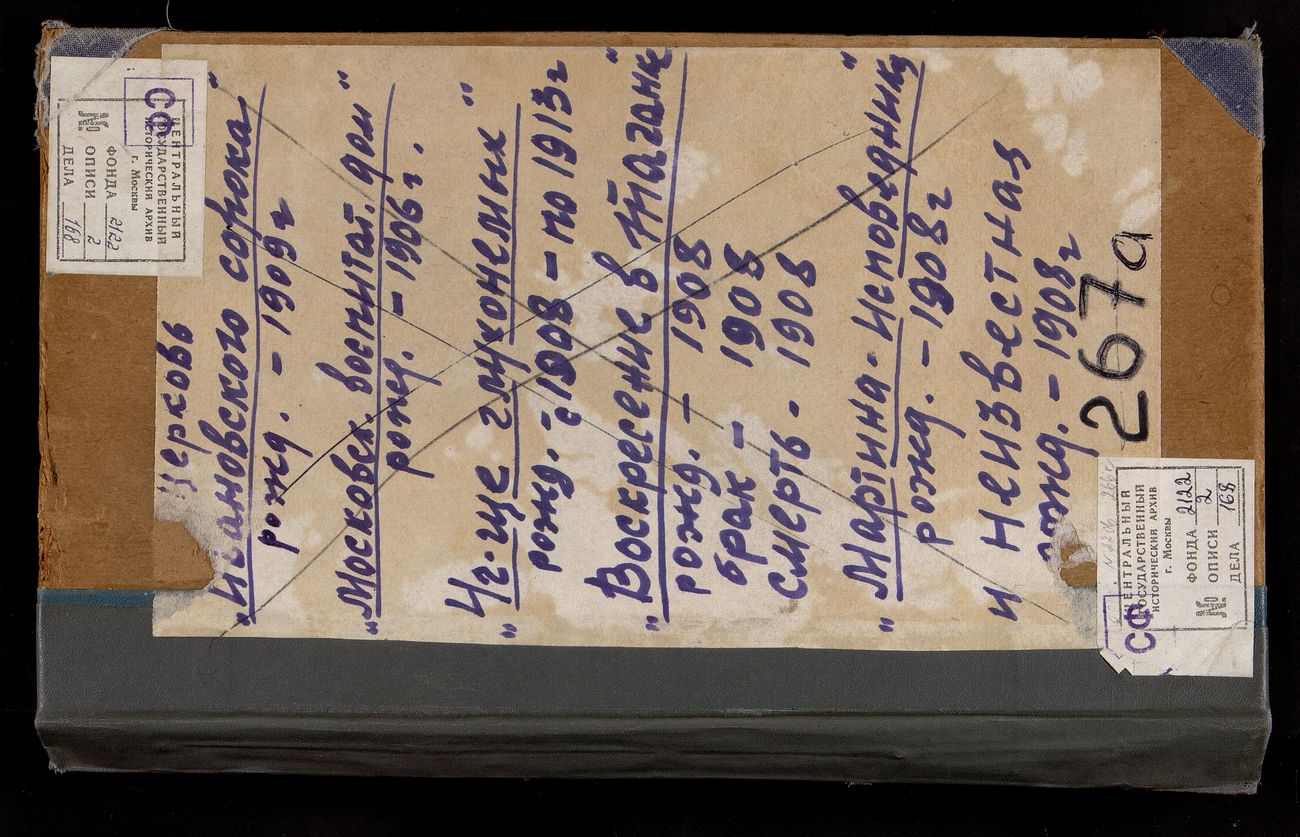 СФ
ЦЕНТРАЛЬНЫЙ
ГОСУДАРСТВЕННЫЙ
ИСТОРИЧЕСКИЙ АРХИВ
г. Москвы
ФОНДА 2122
№ ОПИСИ 2
ДЕЛА 168
Церковь
"Ивановского сорока"
рожд. - 1909 г
"Московск. воспитат. дом"
рожд. - 1906 г.
"Уг-ще глухонемых"
рожд. - с 1908 - по 1913 г
"Воскресение в Таганке"
рожд. - 1908
брак - 1908
Смерть - 1908
"Мартина-Исповедника"
рожд. - 1908 г
и Неизвестная
рожд. - 1908 г
267а
СФ
ЦЕНТРАЛЬНЫЙ
ГОСУДАРСТВЕННЫЙ
ИСТОРИЧЕСКИЙ АРХИВ
г. Москвы
ФОНДА 2122
№ ОПИСИ 2
ДЕЛА 168